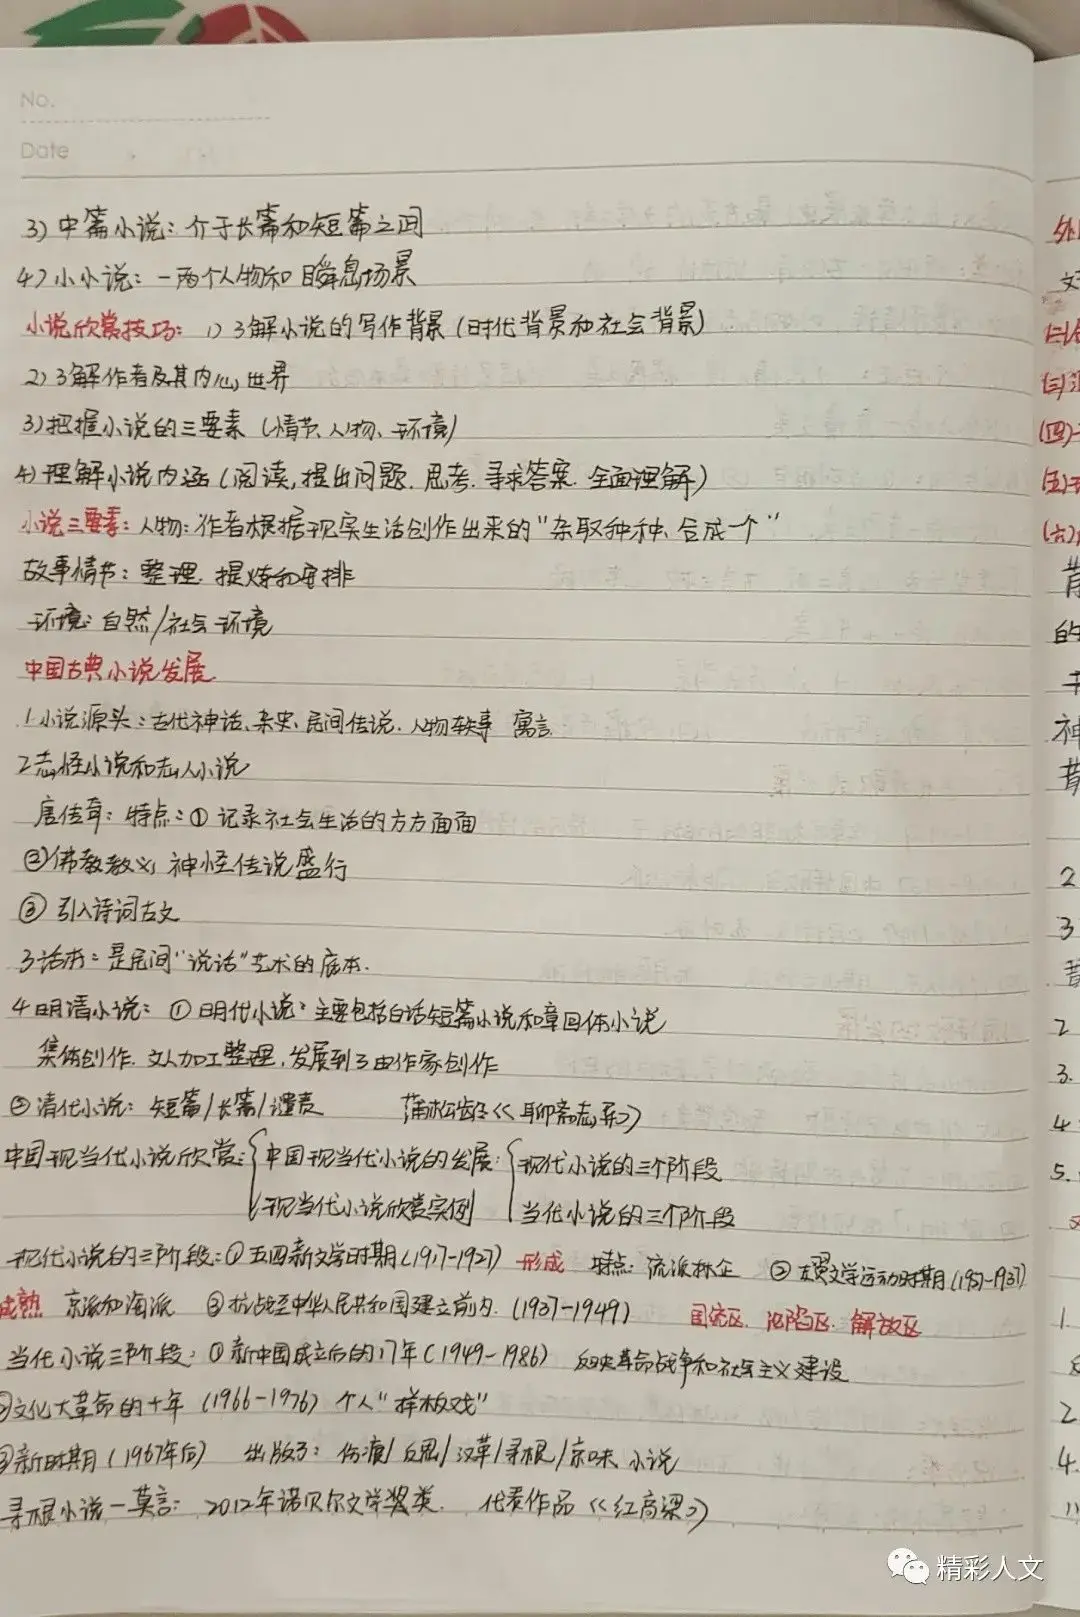 No.
Date
3) 中篇小说：介于长篇和短篇之间
4) 小小说：一两个人物和瞬息场景
小说欣赏技巧：1) 了解小说的写作背景（时代背景和社会背景）
2) 了解作者及其内心世界
3) 把握小说的三要素（情节、人物、环境）
4) 理解小说内涵（阅读，提出问题．思考．寻求答案．全面理解）
小说三要素：人物：作者根据现实生活创作出来的“杂取种种、合成一个”
故事情节：整理．提炼和安排
环境：自然/社会环境
中国古典小说发展
1.小说源头：古代神话、杂史、民间传说．人物轶事 寓言
2志怪小说和志人小说
唐传奇：特点：① 记录社会生活的方方面面
②佛教教义，神怪传说盛行
③ 引入诗词古文
3话本：是民间“说话”艺术的底本．
4明清小说：①明代小说：主要包括白话短篇小说和章回体小说
集体创作．文人加工整理，发展到了由作家创作
②清代小说：短篇/长篇/谴责 蒲松龄《聊斋志异》
中国现当代小说欣赏：{中国现当代小说的发展：{现代小说的三个阶段
现当代小说欣赏实例 当代小说的三个阶段
现代小说的三阶段：①五四新文学时期(1917-1927) 形成 特点：流派林立 ② 左翼文学运动时期(1927-1937)
成熟 京派和海派 ③抗战至中华人民共和国建立前内．(1937-1949) 国统区．沦陷区．解放区
当代小说三阶段：①新中国成立后的17年(1949-1986) 反映革命战争和社会主义建设
②文化大革命的十年 (1966-1976) 个人“样板戏”
③新时期(1967年后) 出版了：伤痕/反思/改革/寻根/京味 小说
寻根小说—莫言：2012年诺贝尔文学奖类． 代表作品《红高粱》
精彩人文